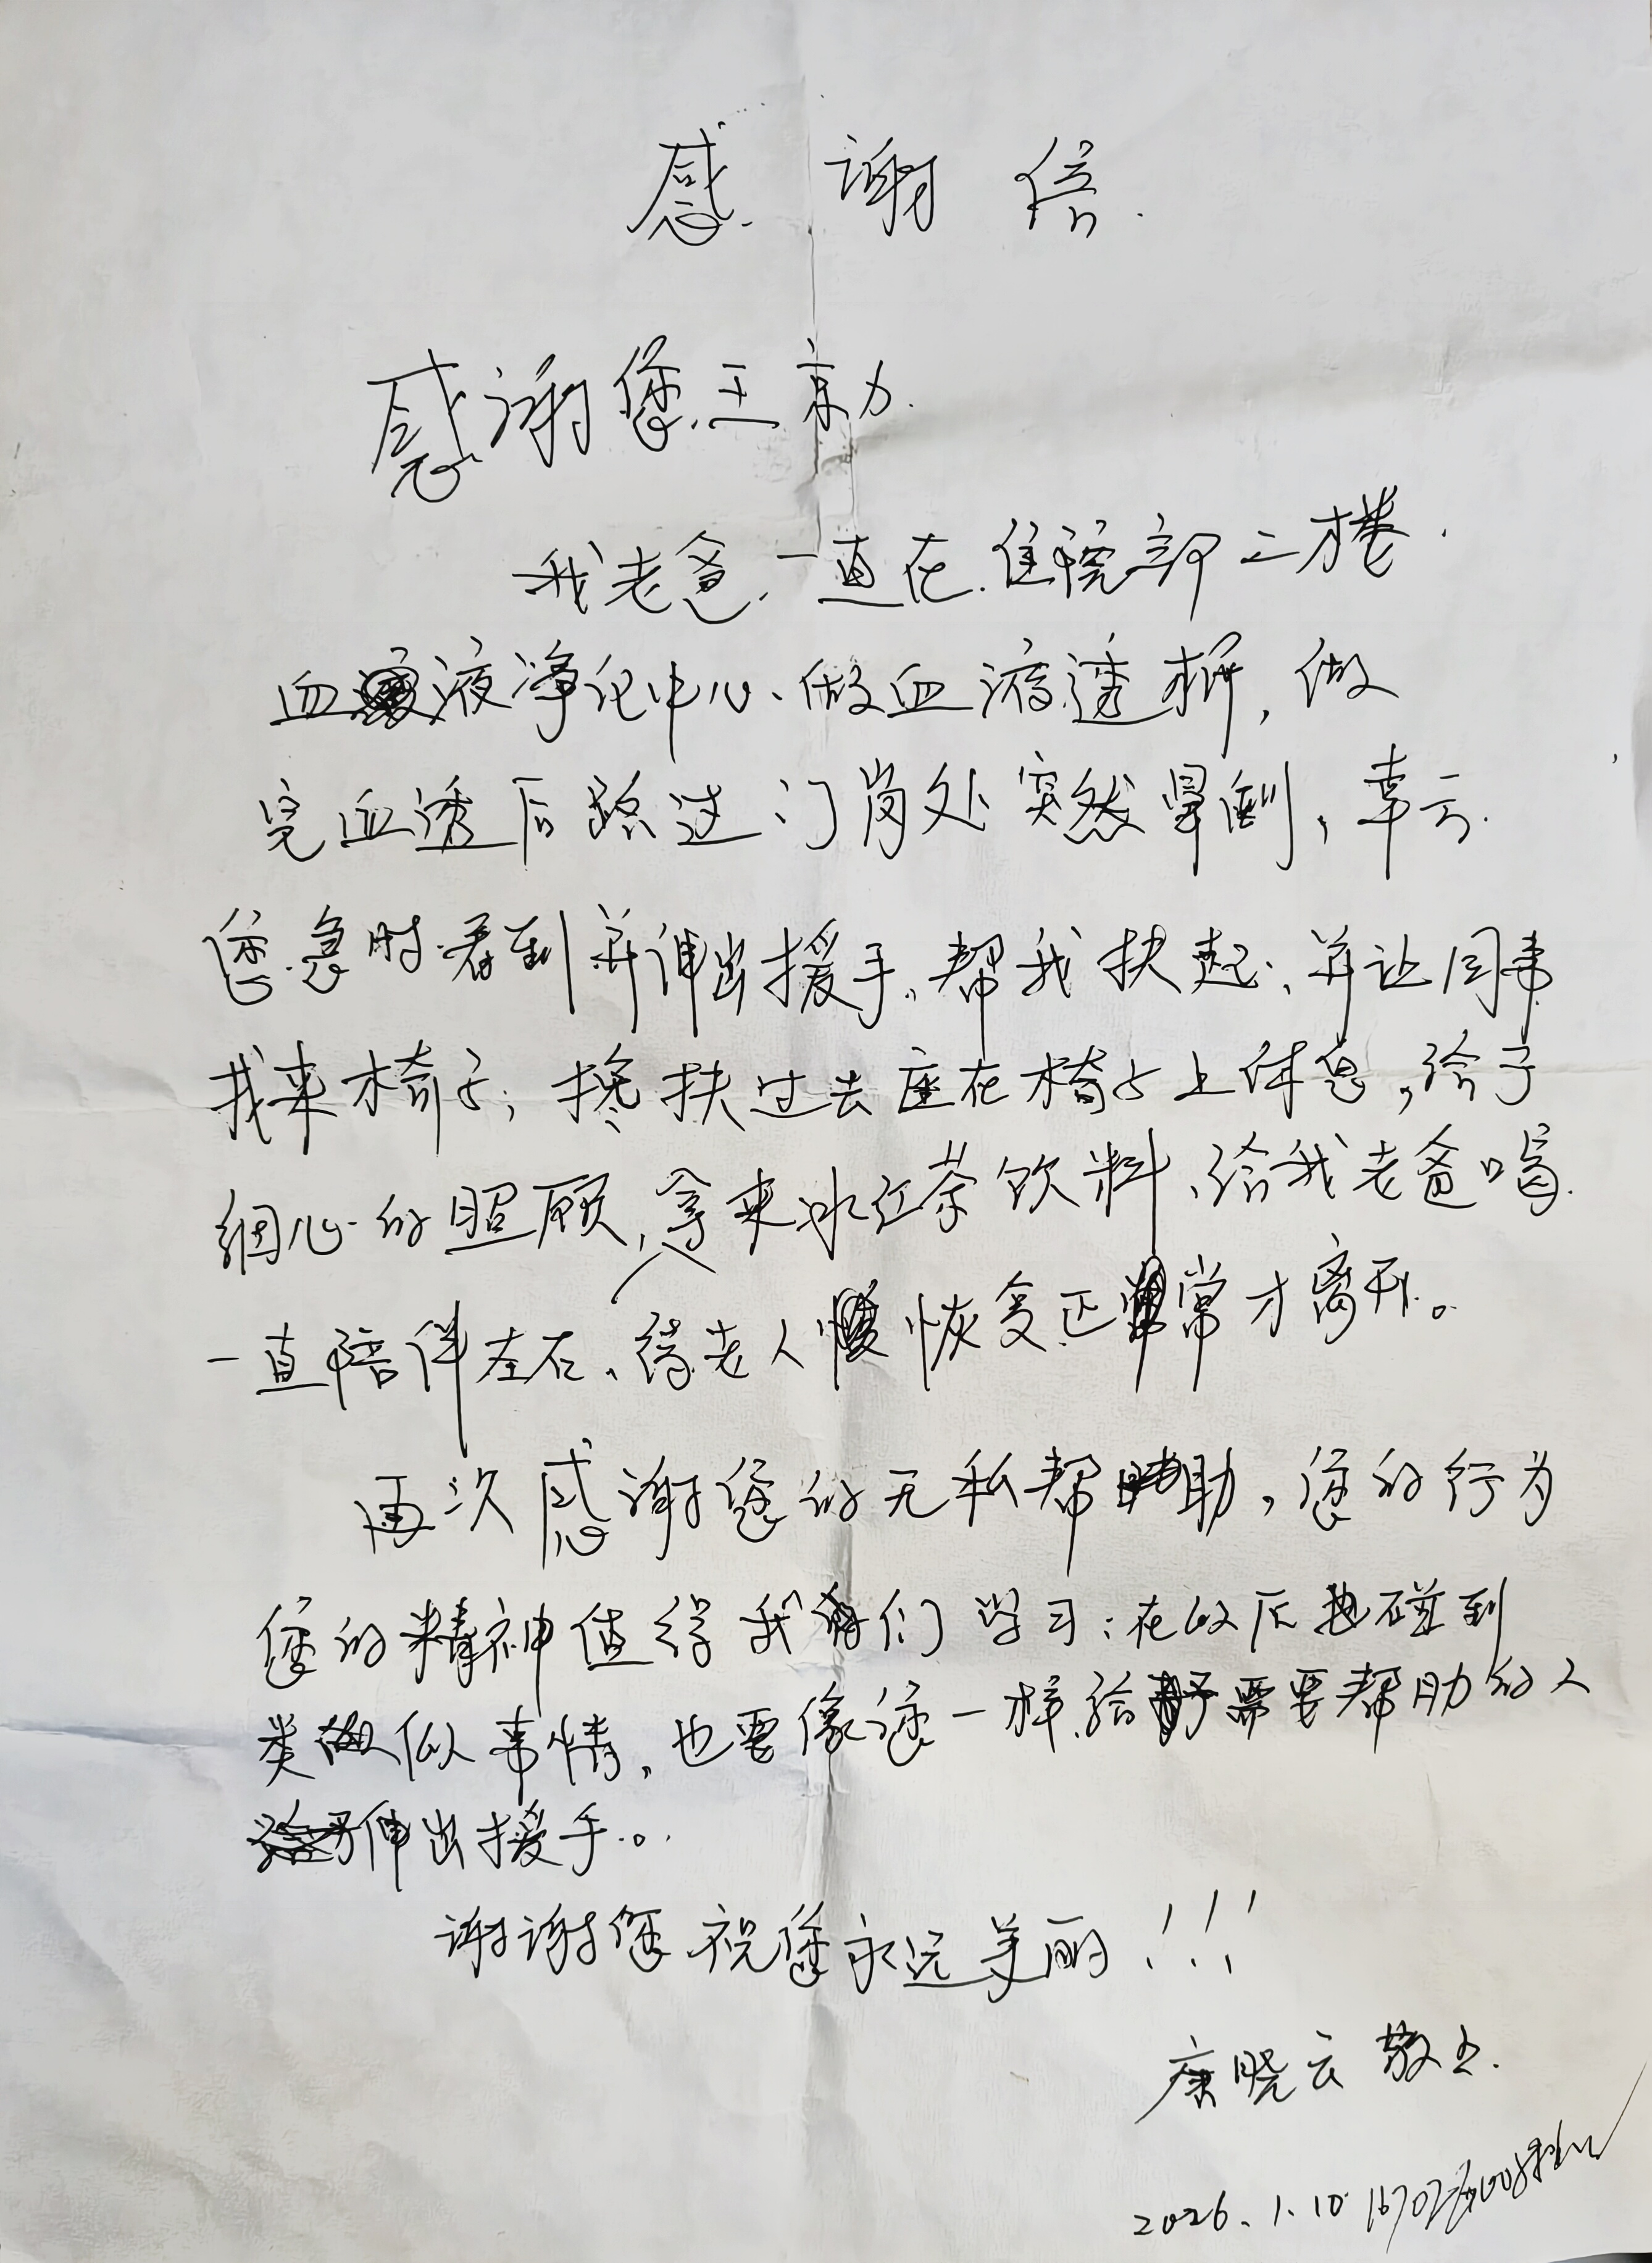 感谢信.
感谢您王京力.
我老爸.一直在.住院部二楼.
血液净化中心、做血液透析,做
完血透后路过门岗处突然晕倒,幸亏.
您.急时看到并伸出援手,帮我扶起,并让同事
找来椅子,搀扶过去座在椅子上休息,给予
细心的照顾,拿来冰红茶饮料、给我老爸喝.
一直陪伴左右、待老人恢复正常才离开。
再次感谢您的无私帮助,您的行为
您的精神值得我们学习:在以后也碰到
类似事情,也要像您一样给予需要帮助的人
伸出援手。
谢谢您祝您永远美丽!!!
康晓云敬上.
2026.1.10